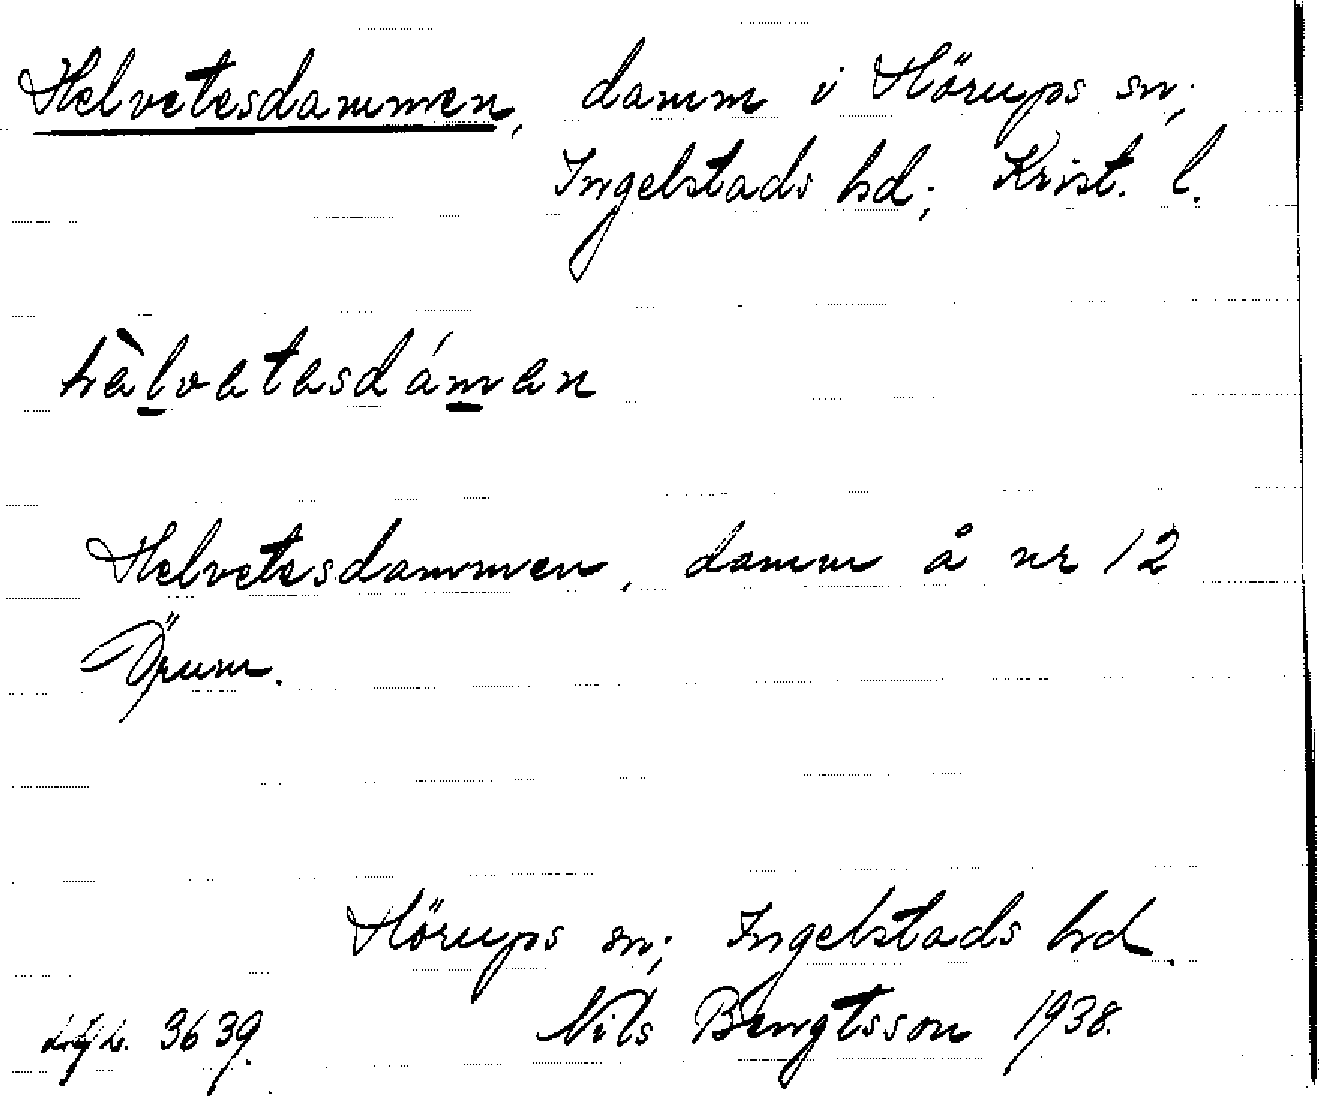 Helvetesdammen, damm i Hörups sn;
Ingelstads hd; Krist. l.
hàlvatasdáman
Helvetesdammen, damm å nr 12
Örum.
Hörups sn; Ingelstads hd.
Nils Bengtsson 1938.
3639.